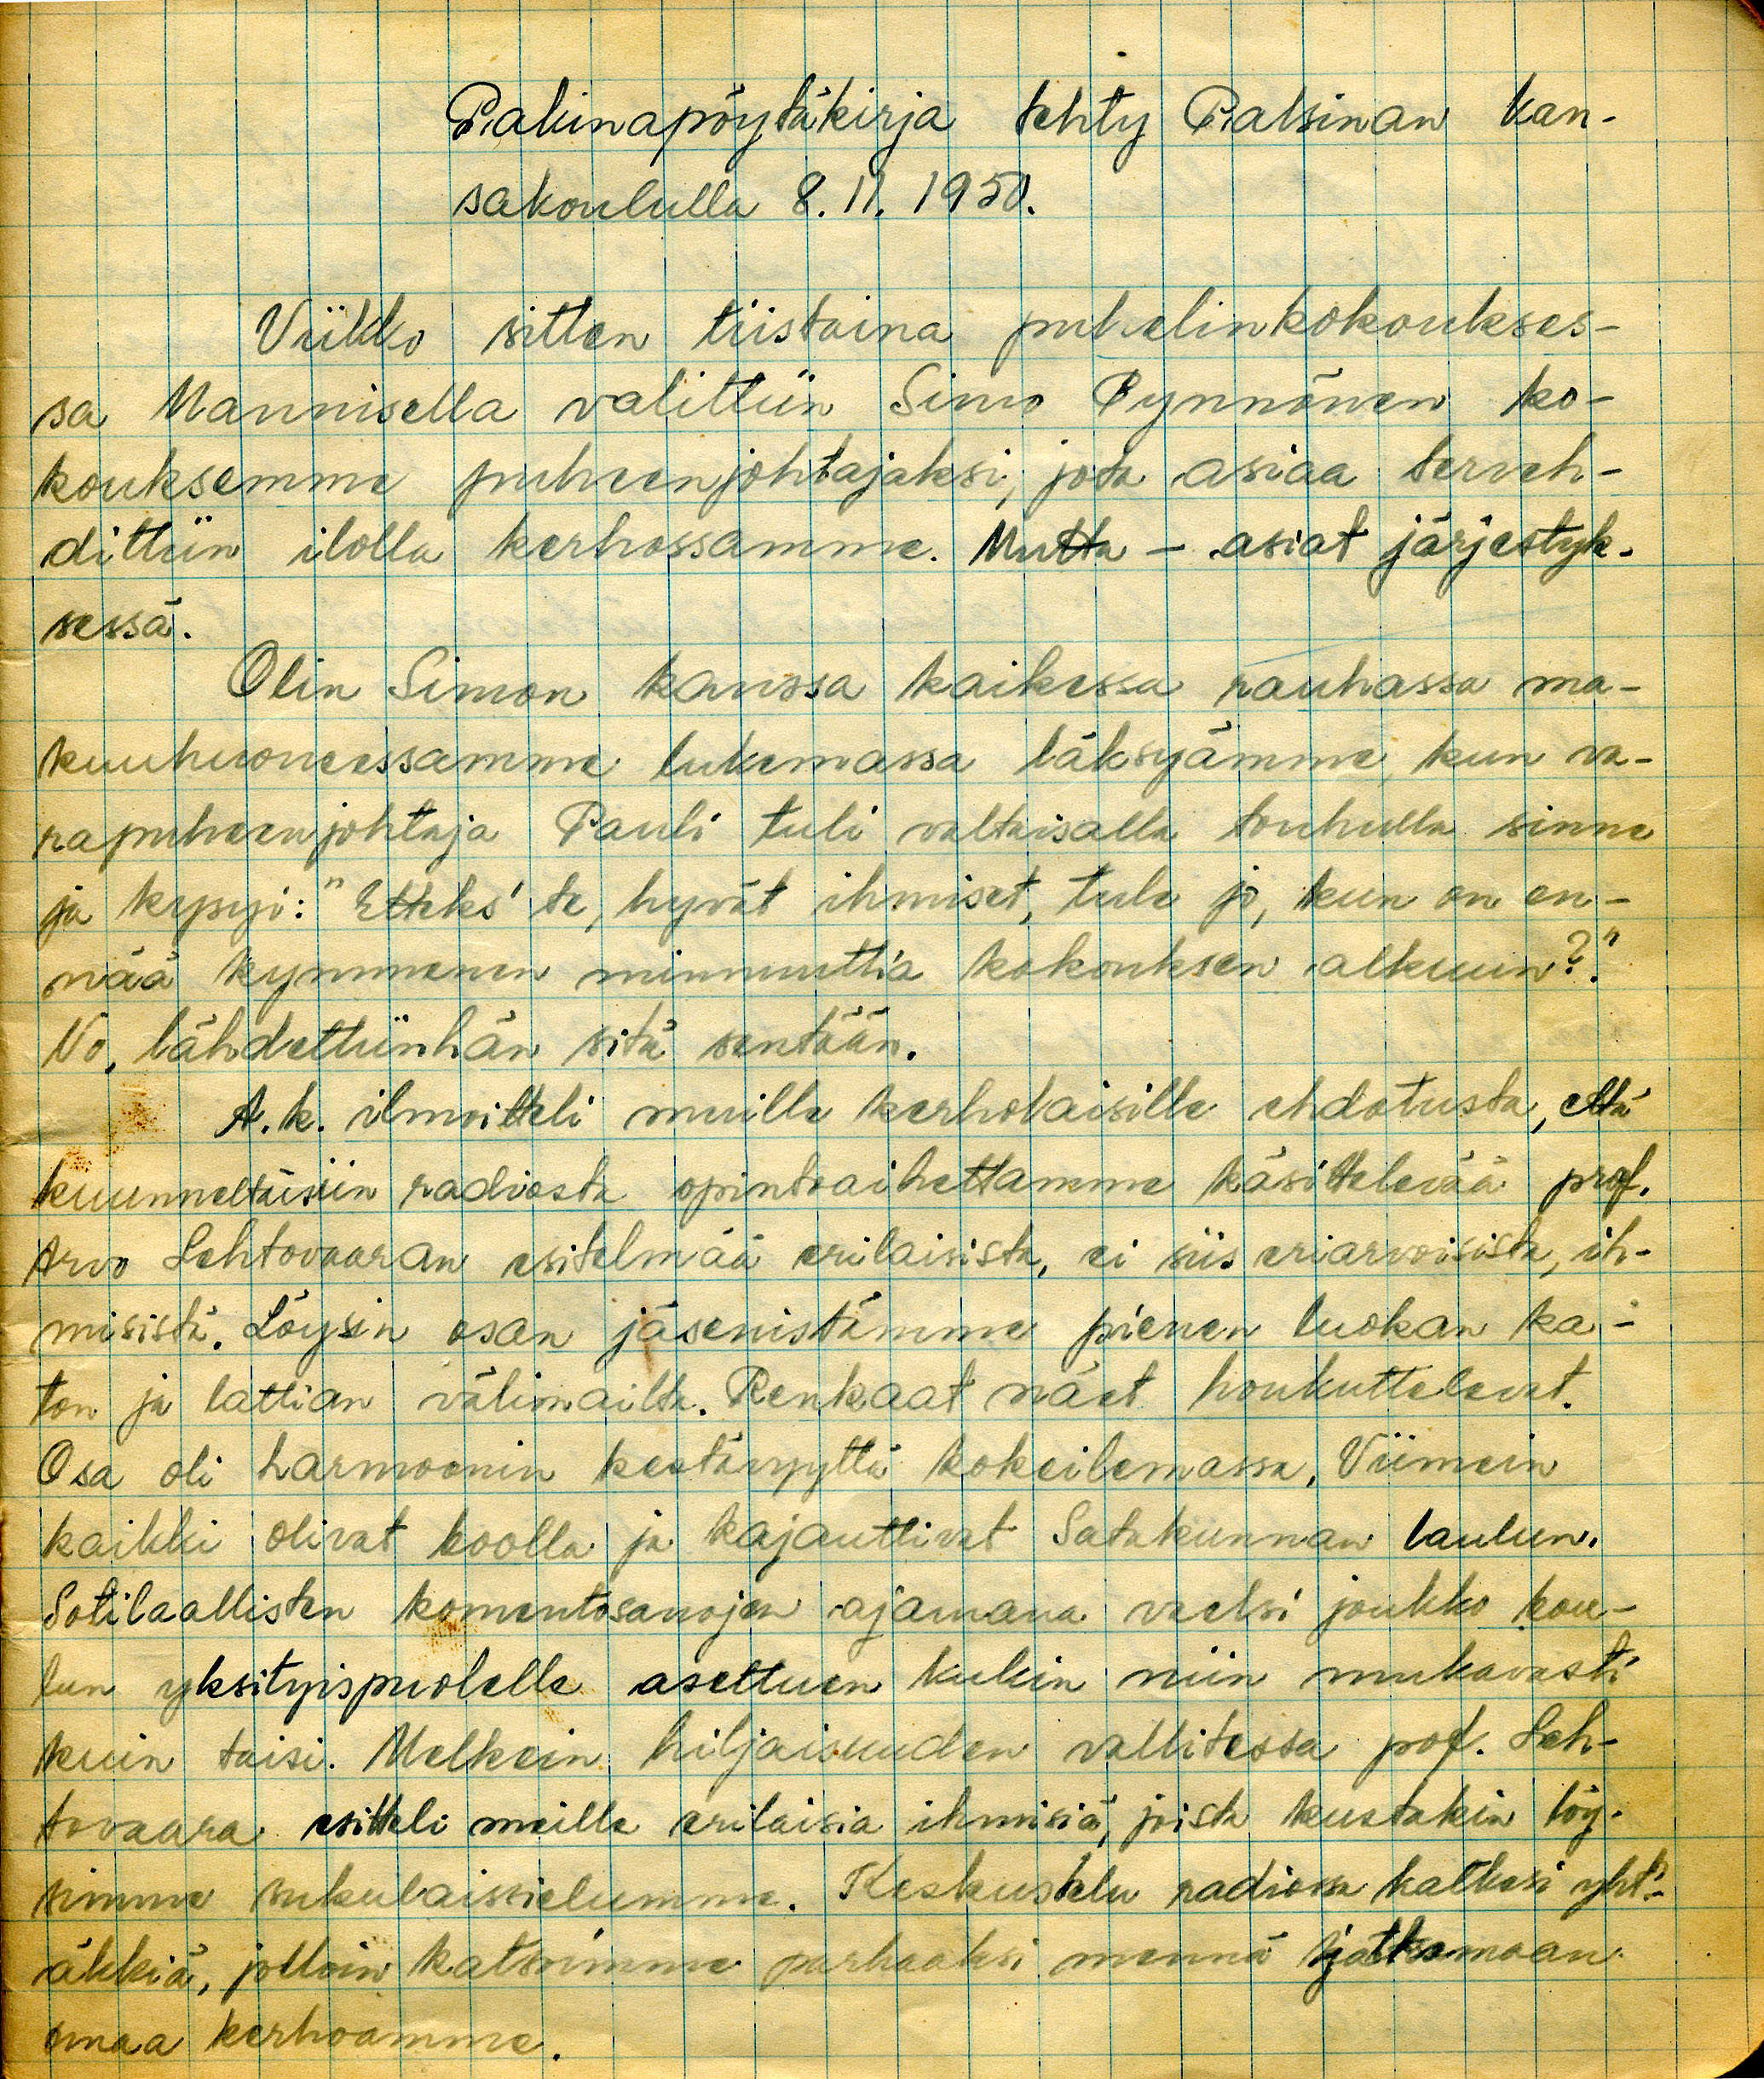 Pakinapöytäkirja tehty Patsinan kan-
sakoululla 8.11.1950.
Viikko sitten tiistaina puhelinkokoukses-
sa Mannisella valittiin Simo Pynnönen ko-
kouksemme puheenjohtajaksi, jota asiaa terveh-
dittiin ilolla kerhossamme. Mutta - asiat järjestyk-
sessä.
Olin Simon kanssa kaikessa rauhassa ma-
kuuhuoneessamme lukemassa läksyämme, kun va-
rapuheenjohtaja Pauli tuli valtaisalla touhulla sinne
ja kysyi: "Etteks' te, hyvät ihmiset, tule jo, kun on en-
nää kymmenen minnuuttia kokouksen alkuun?"
No, lähdettiinhän sitä sentään.
A.k. ilmoitteli muille kerholaisille ehdotusta, että
kuunneltaisiin radiosta opintoaihettamme käsittelevää prof.
Arvo Lehtovaaran esitelmää erilaisista, ei siis eriarvoisista, ih-
misistä. Löysin osan jäsenistämme pienen luokan ka-
ton ja lattian välimailta. Renkaat näet houkuttelevat.
Osa oli harmoonin kestävyyttä kokeilemassa. Viimein
kaikki olivat koolla ja kajauttivat Satakunnan laulun.
Sotilaallisten komentosanojen ajamana vaelsi joukko kou-
lun yksityispuolelle asettuen kukin niin mukavasti
kuin taisi. Melkein hiljaisuuden vallitessa pof. Leh-
tovaara esitteli meille erilaisia ihmisiä, joista kustakin löy-
simme sukulaissielumme. Keskustelu radiossa katkesi yht'-
äkkiä, jolloin katsoimme parhaaksi mennä jatkamaan
omaa kerhoamme.